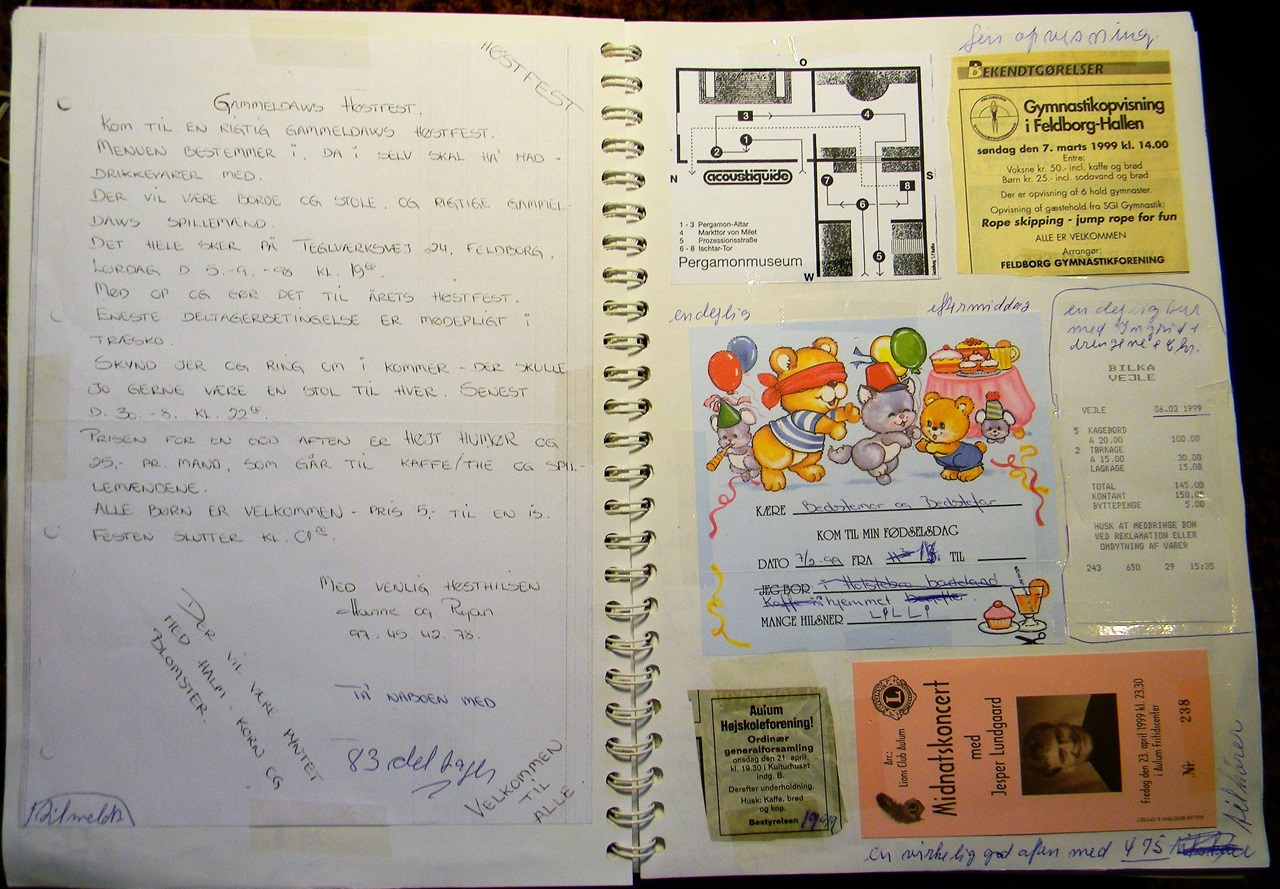 HØSTFEST
GAMMELDAWS HØSTFEST.
KOM TIL EN RIGTIG GAMMELDAWS HØSTFEST.
MENUEN BESTEMMER I, DA I SELV SKAL HA' MAD -
DRIKKEVARER MED.
DER VIL VÆRE BORDE OG STOLE, OG RIGTIGE GAMMEL-
DAWS SPILLEMÆND
DET HELE SKER PÅ TEGLVÆRKSVEJ 24, FELDBORG,
LØRDAG D. 5.-9.-98 KL. 19⁰⁰
MØD OP OG GØR DET TIL ÅRETS HØSTFEST.
ENESTE DELTAGERBETINGELSE ER MØDEPLIGT I
TRÆSKO.
SKYND JER OG RING OM I KOMMER - DER SKULLE
JO GERNE VÆRE EN STOL TIL HVER. SENEST
D. 30.-8. KL. 22⁰⁰
PRISEN FOR EN GOD AFTEN ER HØJT HUMØR OG
25,- PR. MAND, SOM GÅR TIL KAFFE/THE OG SPIL-
LEMÆNDENE.
ALLE BØRN ER VELKOMMEN - PRIS 5,- TIL EN IS.
FESTEN SLUTTER KL. 01⁰⁰.
MED VENLIG HØSTHILSEN
Hanne og Ryan
97. 45 42. 78.
DER VIL VÆRE PYNTET
MED HALM - KORN OG
BLOMSTER.
TA' NABOEN MED
83 deltager
VELKOMMEN
TIL
ALLE
Tilmeldt
opvisning
O
3
4
1
2
N
acoustiguide
7
8
S
6
1 - 3 Pergamon-Altar
4 Markttor von Milet
5 Prozessionsstraße
6 - 8 Ischtar-Tor
5
Pergamonmuseum
W
BEKENDTGØRELSER
Gymnastikopvisning
i Feldborg-Hallen
søndag den 7. marts 1999 kl. 14.00
Entre:
Voksne kr. 50.- incl. kaffe og brød
Børn kr. 25.- incl. sodavand og brød
Der er opvisning af 6 hold gymnaster.
Opvisning af gæstehold fra SGI Gymnastik:
Rope skipping - jump rope for fun
ALLE ER VELKOMMEN
Arrangør:
FELDBORG GYMNASTIKFORENING
en dejlig eftermiddag
KÆRE Bedstemor og Bedstefar
KOM TIL MIN FØDSELSDAG
DATO 7/2-99 FRA TIL
JEG BOR: i Holstebro badeland
hjemmet
MANGE HILSNER LILLI
en dejlig tur
med Ingrid +
drengene
BILKA
VEJLE
VEJLE 06.03 1999
5 KAGEBORD
A 20.00 100.00
2 TØRKAGE
A 15.00 30.00
LAGKAGE 15.00
TOTAL 145.00
KONTANT 150.00
BYTTEPENGE 5.00
HUSK AT MEDBRINGE BON
VED REKLAMATION ELLER
OMBYTNING AF VARER
243 650 29 15:35
Aulum
Højskoleforening!
Ordinær
generalforsamling
onsdag den 21. april
kl. 19.30 i Kulturhuset
indg. B.
Derefter underholdning.
Husk: Kaffe, brød
og kop.
Bestyrelsen 1999
Arr.:
Lions Club Aulum
Midnatskoncert
med
Jesper Lundgaard
Fredag den 23. april 1999 kl. 23.30
i Aulum Fritidscenter
Nr 238
en virkelig god aften med 475
tilhører